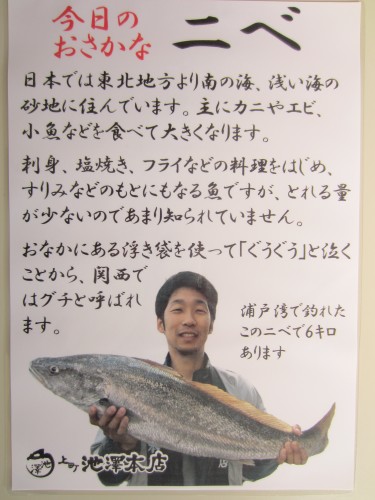 今日の
おさかな
ニベ
日本では東北地方より南の海、浅い海の
砂地に住んでいます。主にカニやエビ、
小魚などを食べて大きくなります。
刺身、塩焼き、フライなどの料理をはじめ、
すりみなどのもとにもなる魚ですが、とれる量
が少ないのであまり知られていません。
おなかにある浮き袋を使って「ぐうぐう」と泣く
ことから、関西で
はグチと呼ばれ
ます。
浦戸湾で釣れた
このニベで6キロ
あります
店
池澤
上町 池澤本店